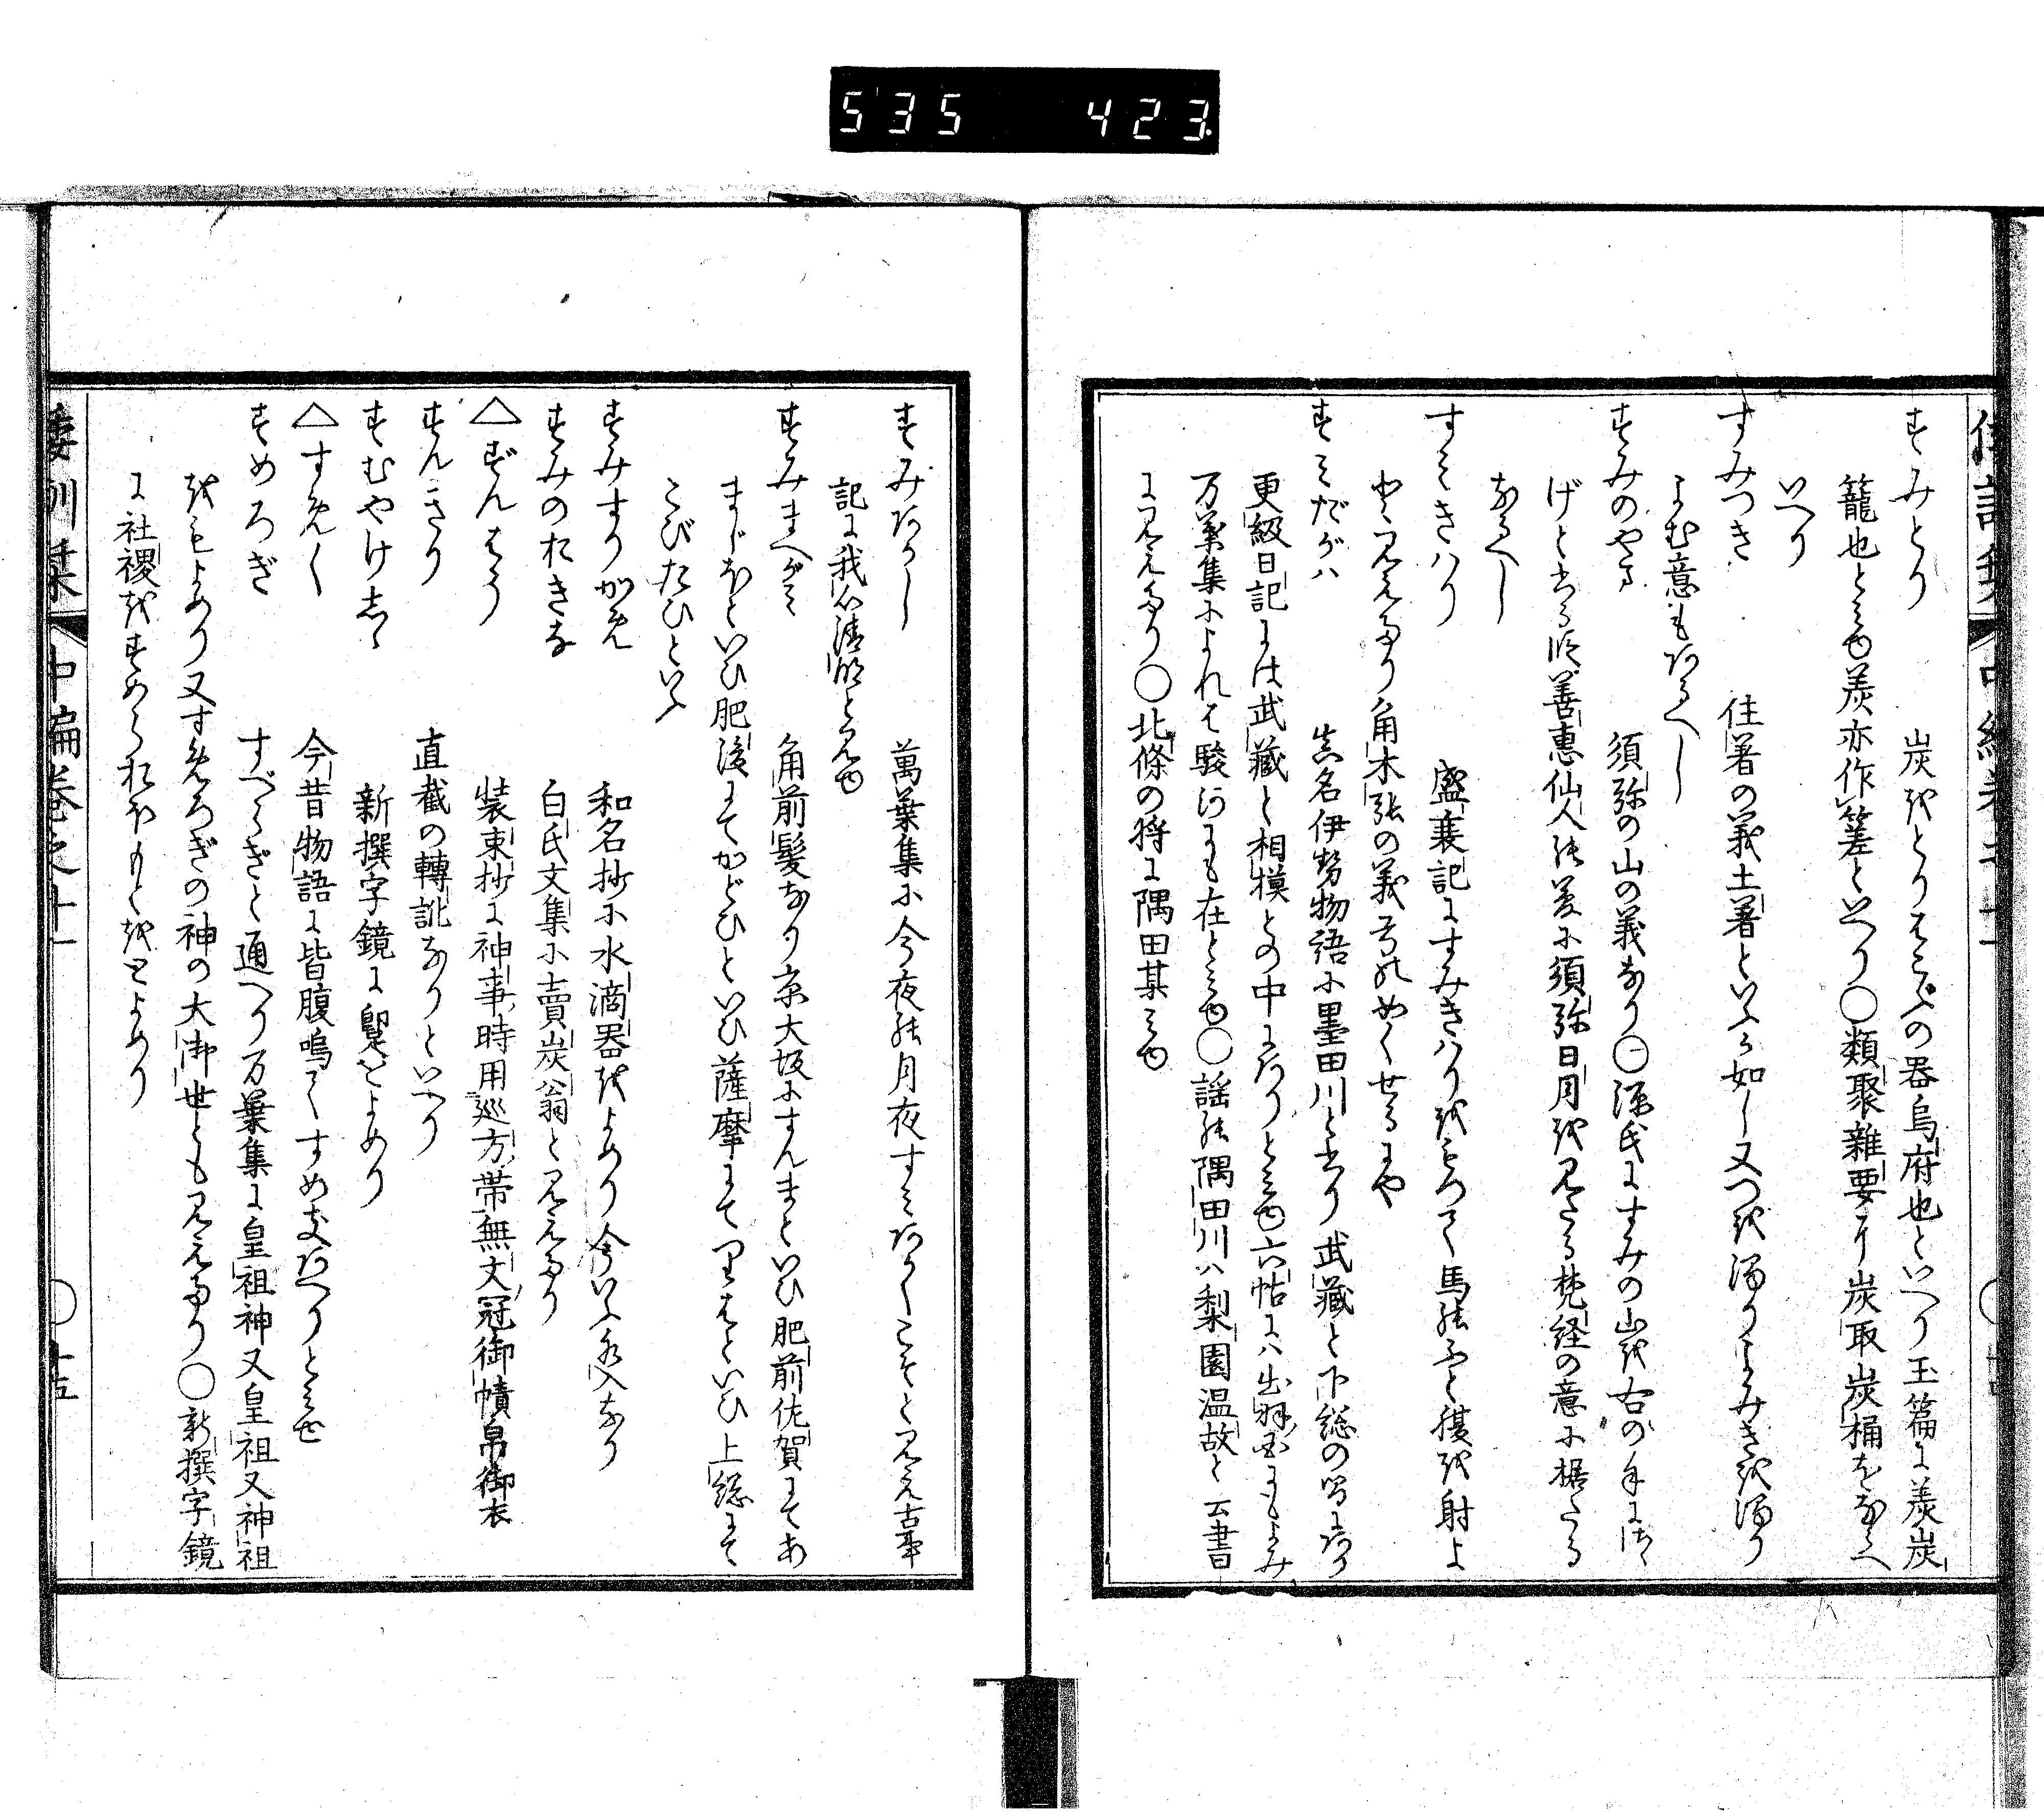 535 423
すみとり 炭をとりはこぶの器烏府也といへり玉篇に羨炭
籠也とみゆ羨亦作䇠といへり○類聚雜要に炭取炭桶をならへ
いへり
すみつき 住著の義土著といふか如し又つを濁りよみきを濁り
よむ意もあるへし
すみのやま 須弥の山の義なり○源氏にすみの山を右の手にさゝ
げとある は善惠仙人の夢に須弥日月を見たる梵経の意に据たる
なるへし
すみきハり 盛衰記にすみきハりをもつて馬のふと腹を射よ
とみえたり角木張の義 めくせるにや
すみだがハ 真名伊勢物語に墨田川と書り武藏と下総の間にあり
更級日記には武藏と相摸との中にありとみゆ六帖にハ出羽国にもよみ
万葉集によれは駿河にも在とみゆ○謡の隅田川ハ梨園温故と云書
に見えたり○北條の将に隅田某みゆ
すみあかし 萬葉集に今夜の月夜すみあかくこそとみえ古事
記に我心清明とみゆ
すみまへがみ 角前髪なり京大坂にすんまといひ肥前佐賀にてあ
まじほといひ肥後にてかどひといひ薩摩にて里はといひ上総にて
こびたひといふ
すみすりがめ 和名抄に水滴器をよめり今いふ水入なり
すみのおきな 白氏文集に賣炭翁と見えたり
△ずんはう 装束抄に神事時用巡方帯無文冠御幘帛御衣
すんきり 直截の轉訛なりといへり
すむやけし 新撰字鏡に をよめり
△すめく 今昔物語に皆腹鳴てすめきあへりとみゆ
すめろぎ すべらぎと通へり万葉集に皇祖神又皇祖又神祖
をもよめり又すめろぎの神の大御世とも見えたり○新撰字鏡
に社禝をすめらおほもとをとよめり
倭訓栞 中編卷之十一 ○十五